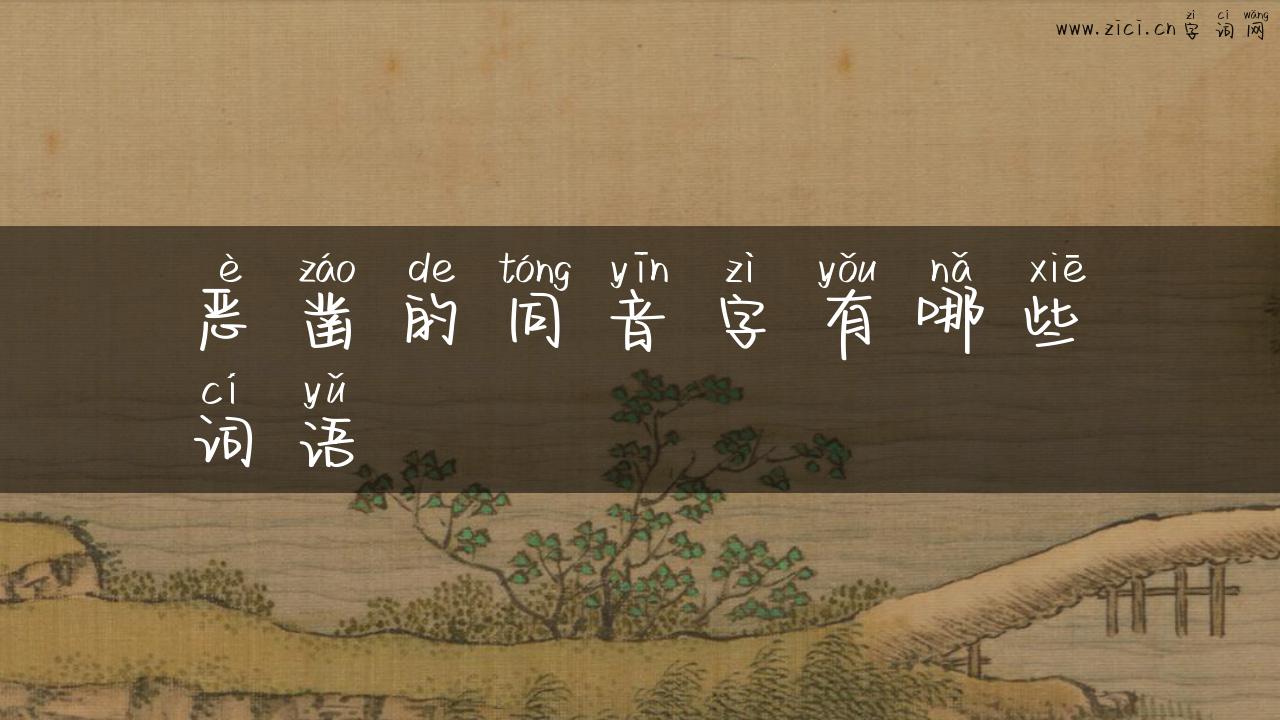 zì cí wǎng
www.zici.cn 字词网
è záo de tóng yīn zì yǒu nǎ xiē
恶凿的同音字有哪些
cí yǔ
词语